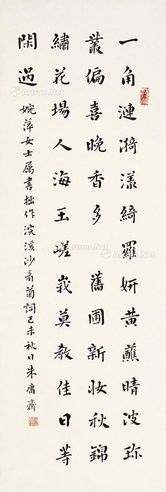 一角漣漪漾綺羅妍黃蘸晴波弥
叢偏喜晚香多　舊圃新妝秋錦
繡花場人海玉嵯峩莫教佳日等
閑過
婉萍女士属書拙作浣溪沙看菊詞己未秋日朱庸齋